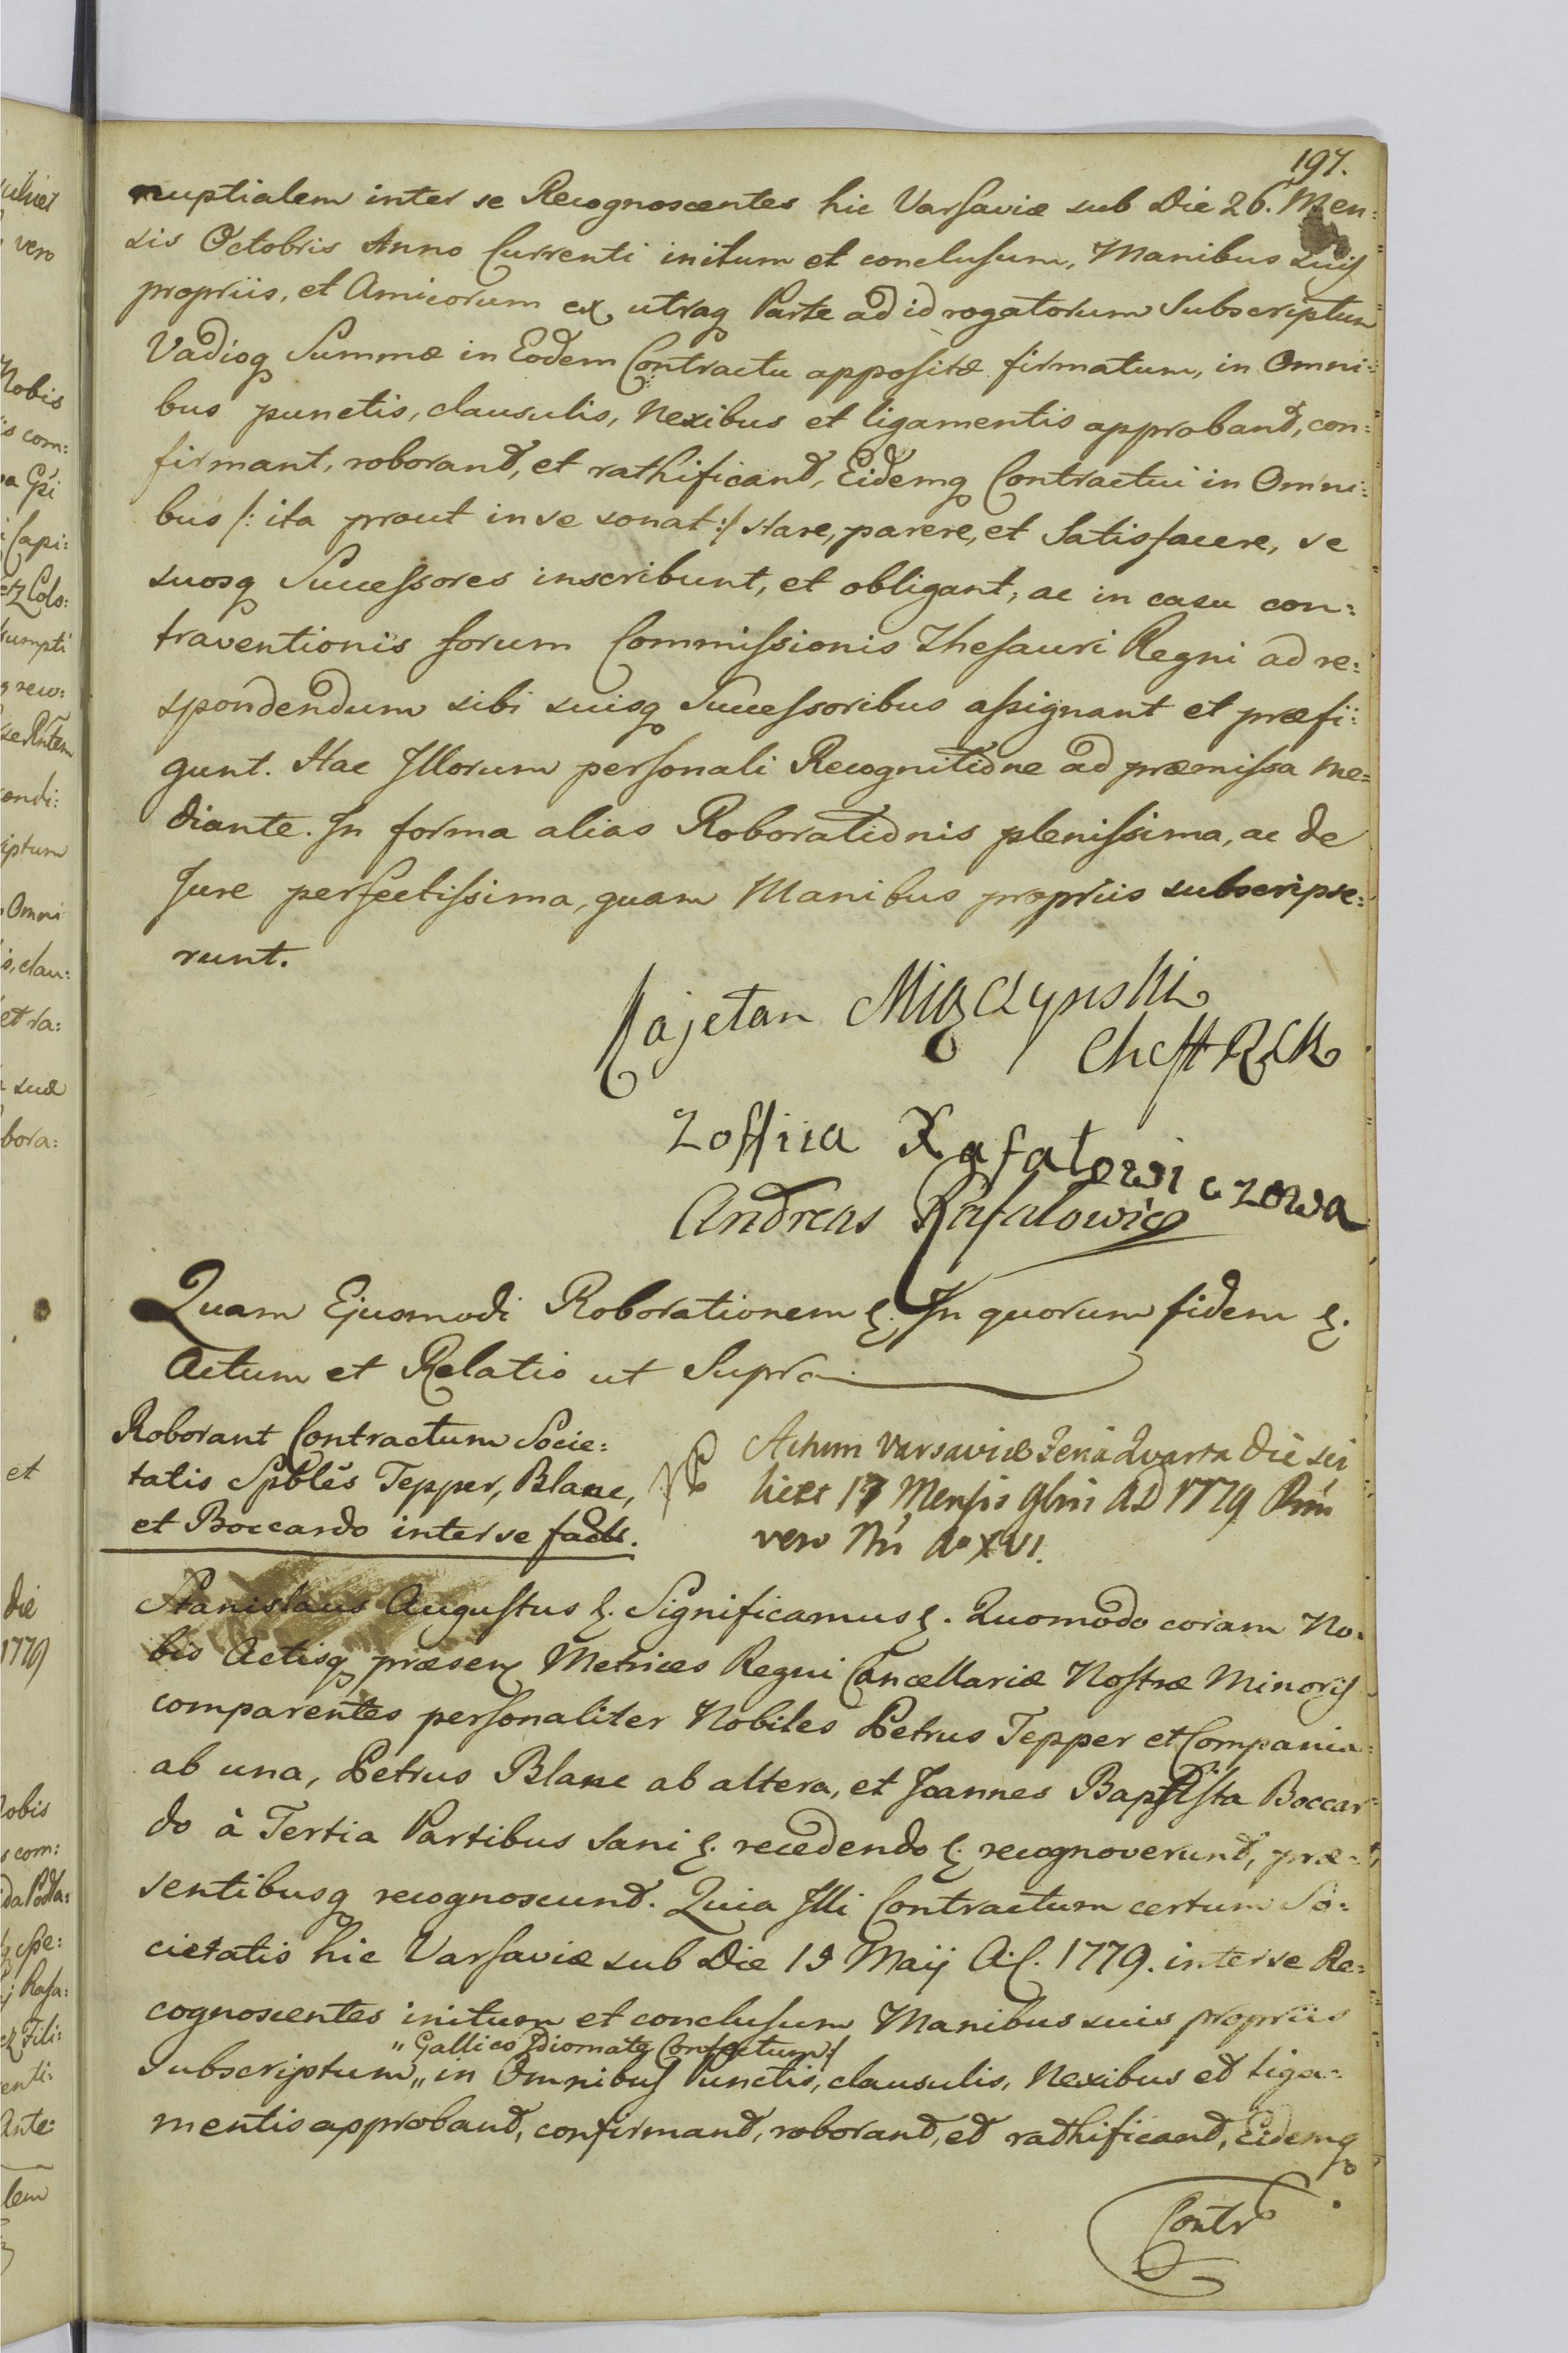 197.
nuptialem inter se Recognoscentes hic Varsaviæ sub Die 26. Men:
sis Octobris Anno Currenti initum et conclusum, Manibus suis
propriis, et Amicorum ex utraq Parte ad id rogatorum Subscriptum
Vadioq Summæ in Eodem Contractu appositæ firmatum, in Omni:
bus punctis, clausulis, Nexibus et ligamentis approbant, con:
firmant, roborant, et rathificant, Eidemq Contractui in Omni:
bus /: ita prout in se sonat :/ stare, parere, et Satisfacere, se
suosq Successores inscribunt, et obligant, ac in casu con:
traventionis forum Commissionis Thesauri Regni ad re:
spondendum sibi suisq Successoribus assignant et præfi:
gunt. Hac Illorum personali Recognitione ad præmissa me:
diante. In forma alias Roborationis plenissima, ac de
Jure perfectissima, quam Manibus propriis subscripse:
runt.
Kajetan Miączynski
Zoffiia Rafałowiczowa
Andreas Rafalowicz
Quam Ejusmodi Roborationem &. In quorum fidem &.
Actum et Relatio ut Supra
Roborant Contractum Socie:
tatis Spbles Tepper, Blanc,
et Boccardo inter se fact.
Actum Varsaviæ Feria Quarta Die sci
licet 17 Mensis 9bris AD 1779 Rni
vero Nri Ao XVI.
Stanislaus Augustus &. Significamus &. Quomodo coram No:
bis Actisq præsen Metrices Regni Cancellariæ Nostræ Minoris
comparentes personaliter Nobiles Petrus Tepper et Compania
ab una, Petrus Blanc ab altera, et Joannes Baptista Boccar:
do à Tertia Partibus Sani &. recedendo &. recognoverunt, præ:
sentibusq recognoscunt. Quia Illi Contractum certum So:
cietatis hic Varsaviæ sub Die 19 Maij A.C. 1779. inter se Re:
cognoscentes initum et conclusum Manibus suis propriis
" Gallico Idiomate Confectum :/
Subscriptum, " in Omnibus Punctis, clausulis, Nexibus et liga:
mentis approbant, confirmant, roborant, et rathificant, Eidemq
Contr